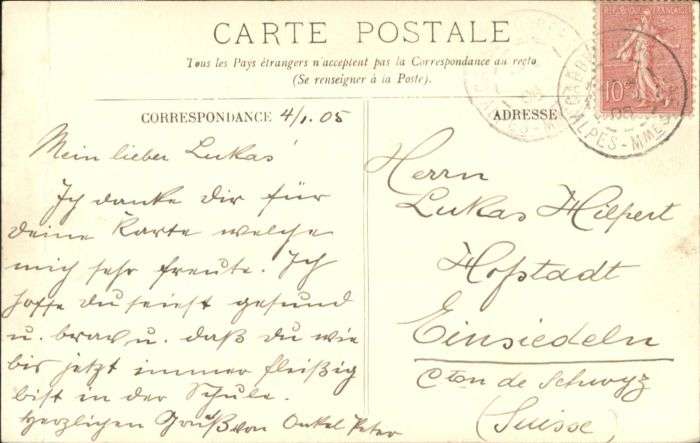 CARTE POSTALE
Tous les Pays étrangers n'acceptent pas la Correspondance au recto
(Se renseigner à la Poste).
CORRESPONDANCE 4/1.05
Mein lieber Lukas!
Ich danke dir für
deine Karte welche
mich sehr freute. Ich
hoffe du seiest gesund
u. brav u. daß du wie
bis jetzt immer fleißig
bist in der Schule.
Herzlichen Gruß von Onkel Peter
ADRESSE
Herrn
Lukas Hilpert
Hofstadt
Einsiedeln
Cton de Schwyz
(Suisse)
REPUBLIQUE FRANÇAISE
10
ALPES-MMES